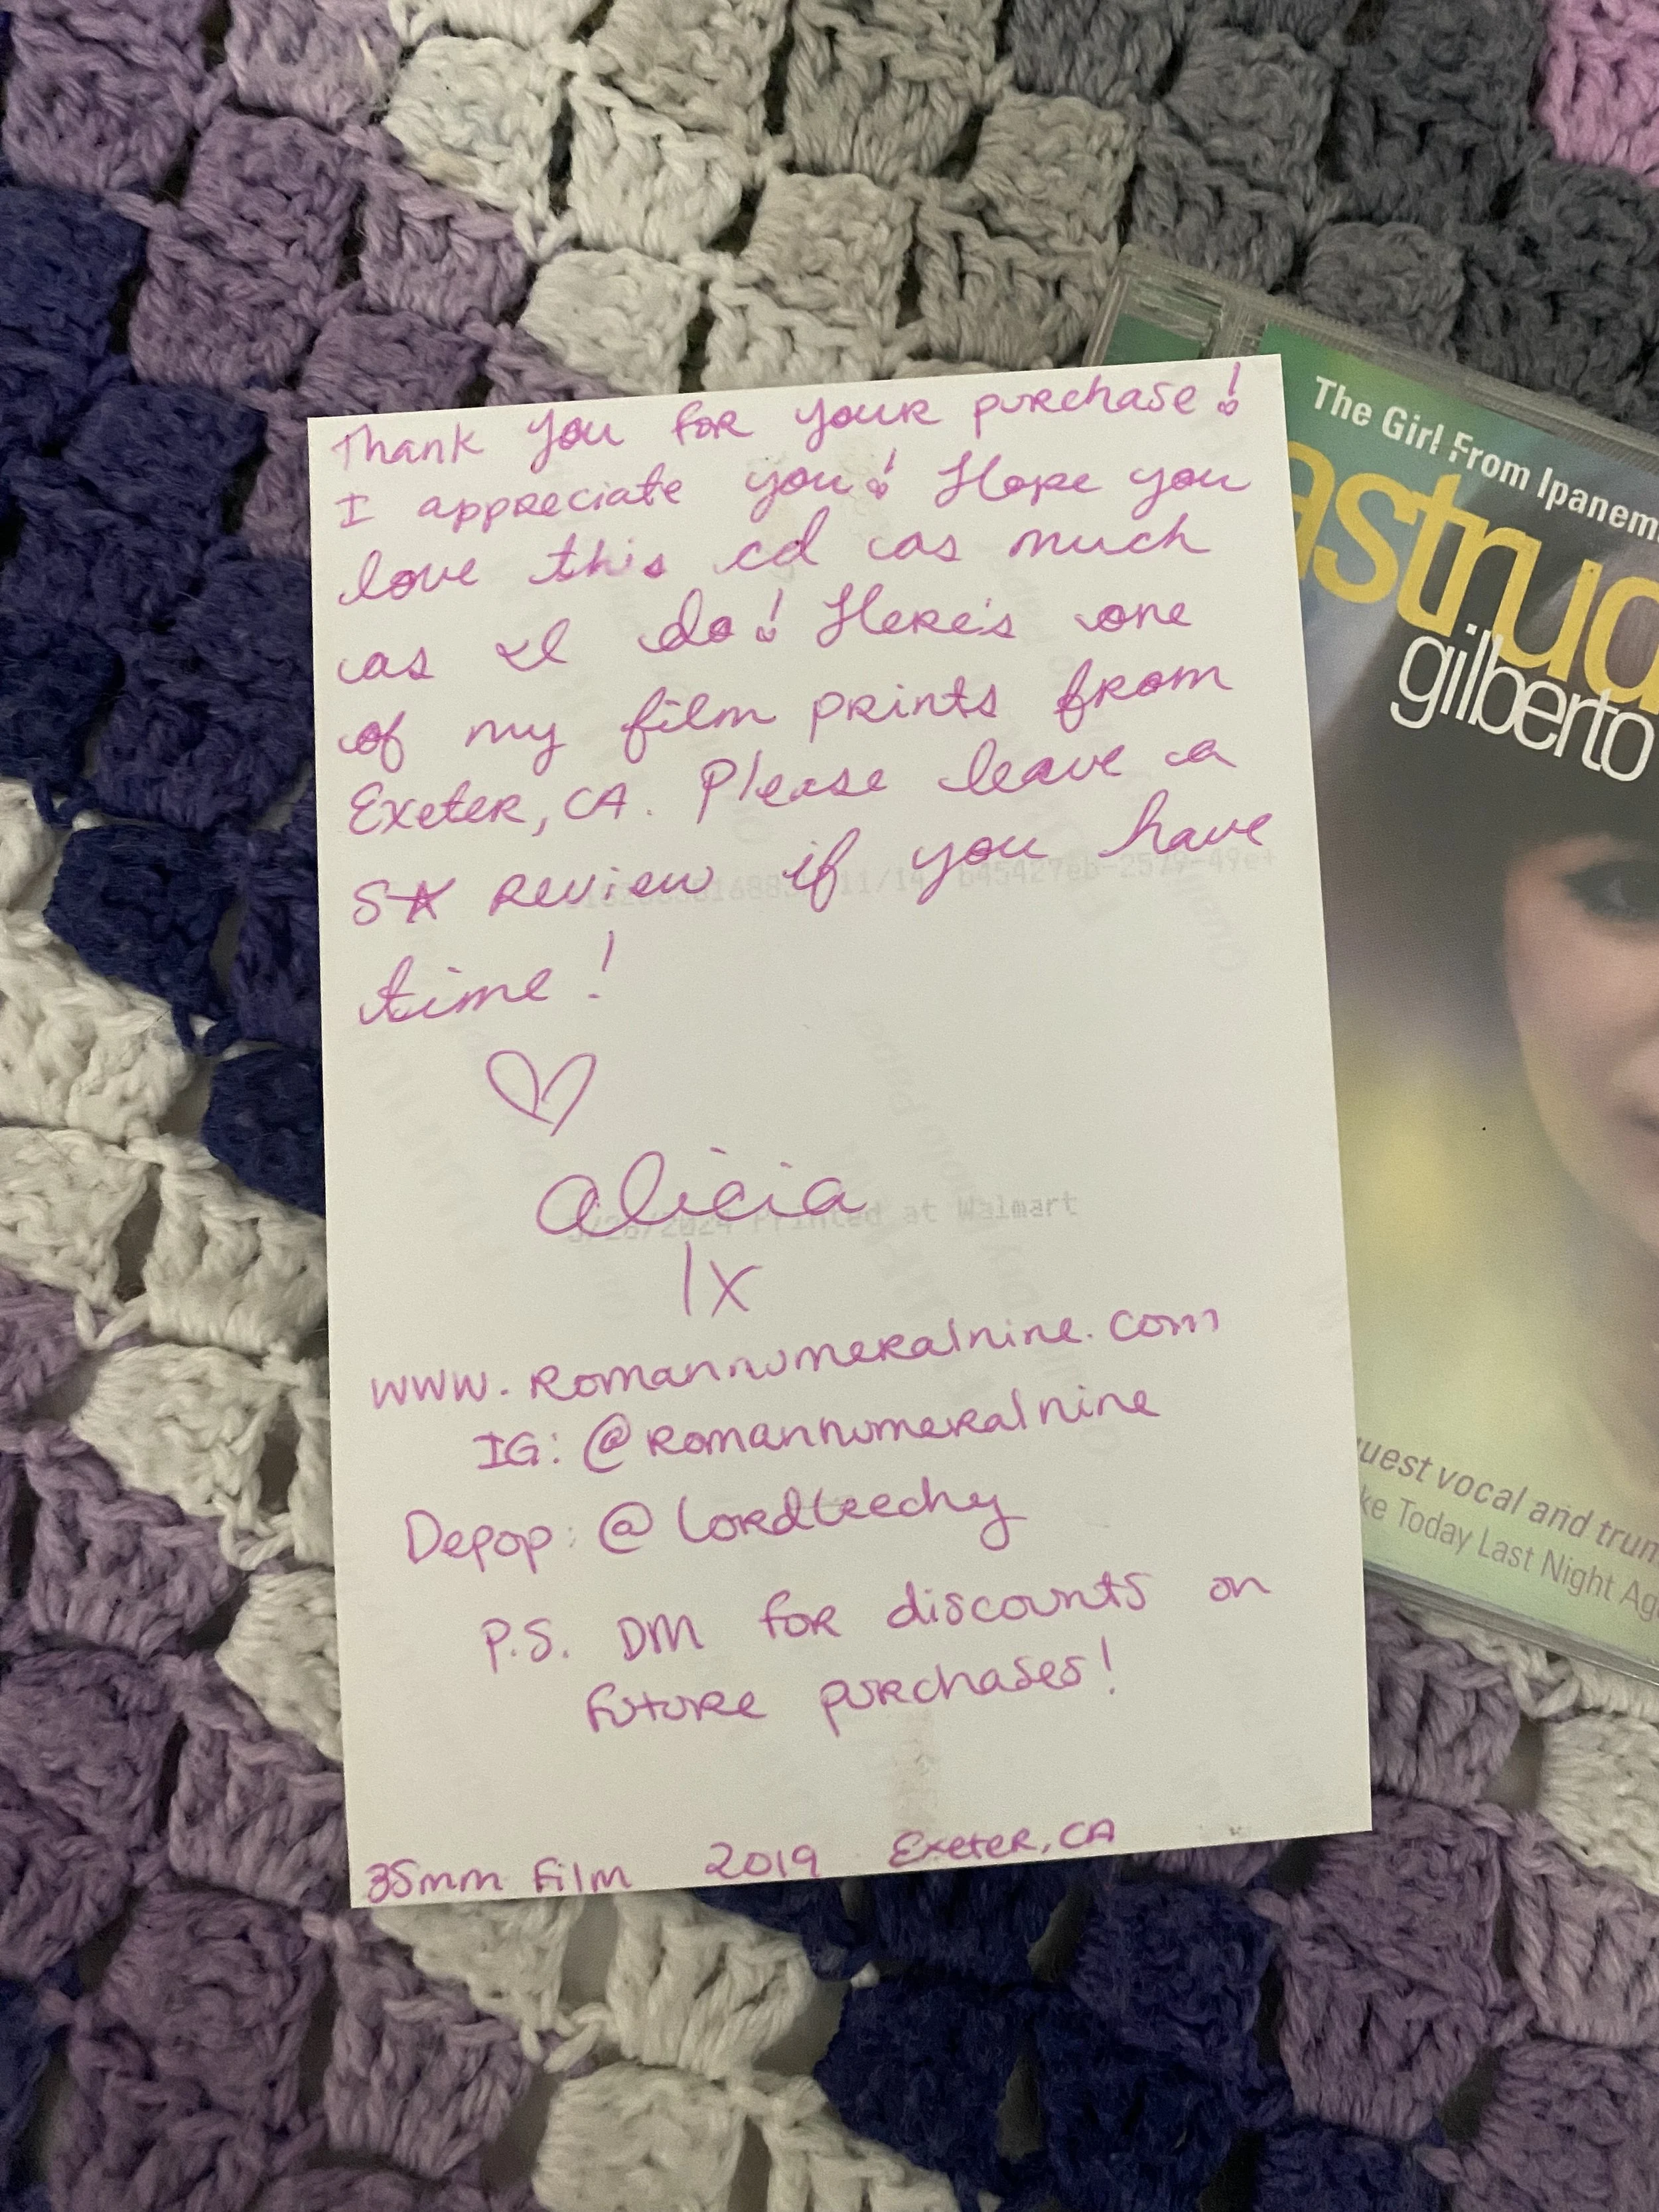 Thank you for your purchase!
I appreciate you! Hope you
love this cd as much
as I do! Here's one
of my film prints from
Exeter, CA. Please leave a
5★ review if you have
time!
♡
Alicia
IX
www.romannumeralnine.com
IG: @romannumeralnine
Depop: @lordleechy
P.S. DM for discounts on
future purchases!
35mm film 2019 Exeter, CA
Printed at Walmart
The Girl From Ipanem
astrud
gilberto
uest vocal and trum
ke Today Last Night Ag